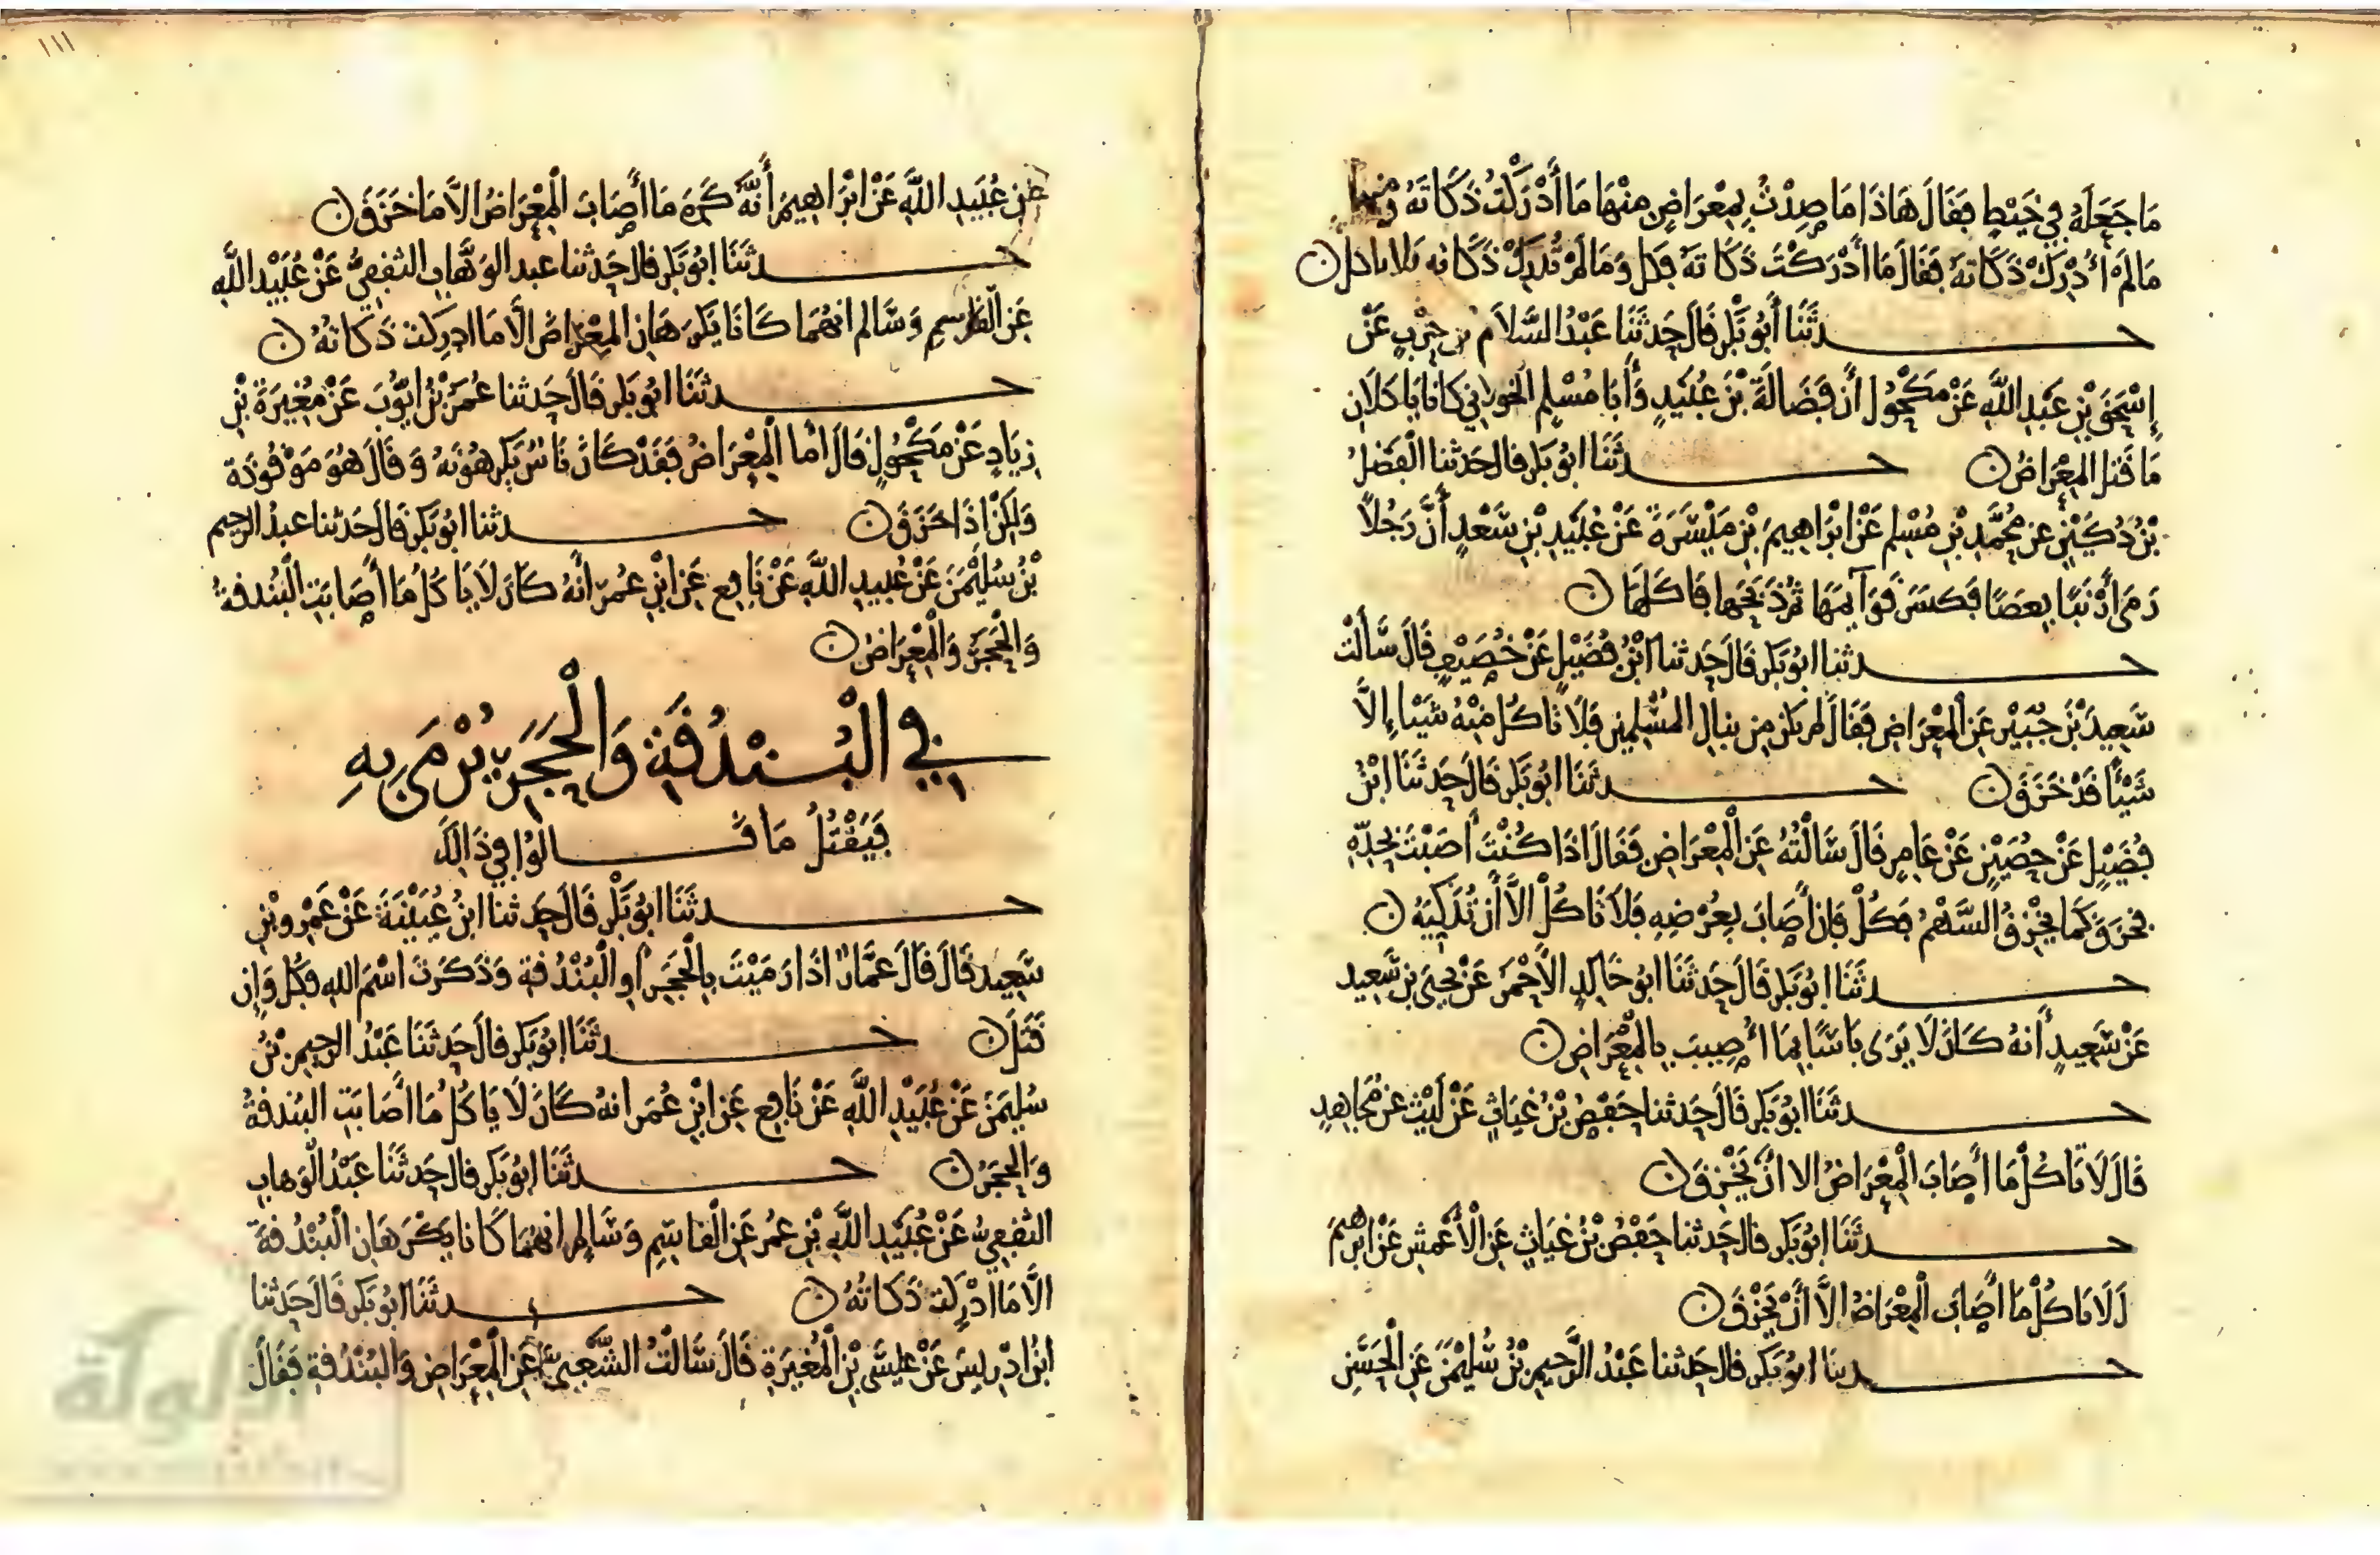 مَا جَعَلَهُ فِي خَيْطٍ فَقَالَ هَاذَا مَا صِدْتُ بِمِعْرَاضٍ مِنْهَا مَا أَدْرَكْتُ ذَكَاتَهُ وَمِنْهَا
مَا لَمْ أُدْرِكْ ذَكَاتَهُ فَقَالَ مَا أَدْرَكْتَ ذَكَاتَهُ فَكُلْ وَمَا لَمْ تُدْرِكْ ذَكَاتَه فَلَا تَاكل ن
حدثَنَا أَبُو بَكْرٍ قَالَ حَدثَنَا عَبْدُ السَّلَامِ بن حَرْبٍ عَنْ
إِسْحَقَ بْنِ عَبْدِ اللَّهِ عَنْ مَكْحُولٍ أَن فَضَالَةَ بْنَ عُبَيْدٍ وَأَبَا مُسْلِمٍ الخولاني كَانَا يَاكلَانِ
مَا قَتل المِعْرَاضُ ن حدثَنَا ابُو بَكر قال حَدثنا الفَضْلُ
بْنُ دُكَيْنٍ عن مُحَمَّدِ بْنِ مُسْلِمٍ عَنْ ابْرَاهِيمَ بْنِ مَيْسَرَةَ عَنْ عُبَيْدِ بْنِ سَعْدٍ أَنَّ رَجُلًا
رَمَى أَرْنَبًا بِعَصًا فَكَسَرَ قَوَايمَهَا ثُمَّ ذَبَحَها فَاكَلَهَا ن
حدثنا ابُو بَكر قَالَ حَدثنا ابْنُ فُضَيْلٍ عَنْ خُصَيْفٍ قَالَ سَأَلْت
سَعِيدَ بْنَ جُبَيْرٍ عَنِ المِعْرَاضِ فَقَالَ لم يكن مِن نبالِ المُسْلِمِين فَلَا تَاكُلْ مِنْهُ شَيْئا إِلَّا
شَيْئًا قَدْ خَزَقَ ن حدثَنَا ابُو بَكرٍ قَالَ حَدثَنَا ابْنُ
فُضَيْلٍ عَنْ حُصَيْنٍ عَنْ عَامِرٍ قَالَ سَأَلْتُهُ عَنِ الْمِعْرَاضِ فَقَالَ اذَا كُنْتَ أَصَبْتَ بِحَدِّهِ
فخَزَقَ كَمَا يَخْزِقُ السَّهْمُ فَكُلْ فَإن أَصَابَ بِعُرْضِهِ فَلَا تَاكُلْ الَّا أَنْ تُذَكِّيَهُ ن
حدثَنَا ابُو بَكر قَالَ حَدثَنَا ابُو خَالِدٍ الأَحْمَر عَنْ يحيى بن سَعِيد
عَنْ سَعِيدٍ أَنهُ كَانَ لَا يَرَى بَاسًا بِمَا أُصِيبَ بِالْمِعْرَاضِ ن
حدثَنَا ابُو بَكر قَالَ حَدثنا حَفْصُ بْنُ غِيَاثٍ عَنْ لَيْث عن مُجَاهِدٍ
قَالَ لَا تَاكُلْ مَا أَصَابَ الْمِعْرَاضُ الا انْ يَخْزِقَ ن
حدثَنَا ابُو بَكر قال حَدثنا حَفْصُ بْنُ غِيَاثٍ عَنِ الْأَعْمَشِ عَنْ ابرهِيمَ
لَا تَاكُلْ مَا أَصَابَ الْمِعْرَاضُ الَّا أَنْ يَخْزِقَ ن
حدثنا ابُو بَكر قال حَدثنا عَبْدُ الرَّحِيم بْنُ سُلَيْمَن عَنِ الْحَسَنِ
١١١
بْنِ عُبَيدِ اللَّهِ عَنْ ابْرَاهِيمَ أَنَّهُ كَرِهَ مَا أَصَابَ الْمِعْرَاضُ الَّا مَا خَزَقَ ن
حدثَنَا ابُو بَكر قال حَدثنا عبد الوَهَّابِ الثقفِيُّ عَنْ عُبَيْدِ اللَّهِ
عَنِ القَاسِمِ وَسَالم انهُمَا كَانَا يَكْرَهَانِ المِعْرَاضَ الَّا مَا ادركت ذَكَاتهُ ن
حدثَنَا ابُو بَكر قَالَ حَدثنا عُمَرُ بْنُ ايُّوبَ عَنْ مُغِيرَةَ بْنِ
زِيَادٍ عَنْ مَكْحُولٍ قَالَ امَّا الْمِعْرَاضُ فَقَدْ كَانَ نَاسٌ يَكرهُونَهُ وَقَالَ هُوَ مَوْقُوذَة
وَلكِنْ اذَا خَزَقَ ن حدثنا ابُو بَكر قَالَ حَدثنا عبدُ الرحِيم
بْنُ سُلَيْمَن عَنْ عُبَيدِ اللَّهِ عَنْ نَافِعٍ عَنِ ابْنِ عُمَرَ أَنهُ كَانَ لَا يَاكُلُ مَا أَصَابَتِ الْبُندقةُ
وَالْحَجَرُ وَالْمِعْرَاضُ ن
فِي الْبُنْدُقَةِ وَالْحَجَرِ يُرْمَى بِهِ
فَيَقْتُلُ مَا قَالوُا فِي ذَالِكَ
حدثَنَا ابُو بَكْرٍ قَالَ حَدثنا ابنُ عُيَيْنَةَ عَنْ عَمْرِو بْنِ
سَعِيد قَالَ قَالَ عمَّارٌ اذَا رَمَيْتَ بِالْحَجَرِ أَوِ الْبُنْدُقَةِ وَذَكَرْتَ اسْمَ اللهِ فَكُل وَإِن
قَتَلَ ن حدثَنَا ابُو بَكر قال حَدثَنَا عَبْدُ الرحِيمِ بْنُ
سُلَيمَن عَنْ عُبَيْدِ اللَّهِ عَنْ نَافِعٍ عَنِ ابْنِ عُمَرَ انهُ كَانَ لَا يَاكُلُ مَا أَصَابَتِ البُندقةُ
وَالحجَرُ ن حدثَنَا ابُو بَكر قال حَدثَنَا عَبْدُ الْوَهابِ
الثقفِيُّ عَنْ عُبَيْدِ اللَّهِ بْنِ عمَرُ عَنِ الْقَاسِمِ وَسَالم انهُمَا كَانَا يَكْرَهَان الْبُنْدُقَةَ
الَّا مَا ادْركت ذَكَاتُهُ ن حدثَنَا ابُو بَكر قَالَ حَدثنا
ابْنُ ادْرِيسَ عَنْ عِيسَى بْنِ الْمُغِيرَةِ قَالَ سَأَلْتُ الشَّعْبِيَّ عَنِ الْمِعْرَاضِ وَالبُنْدُقَةِ فَقَالَ
الألوكة